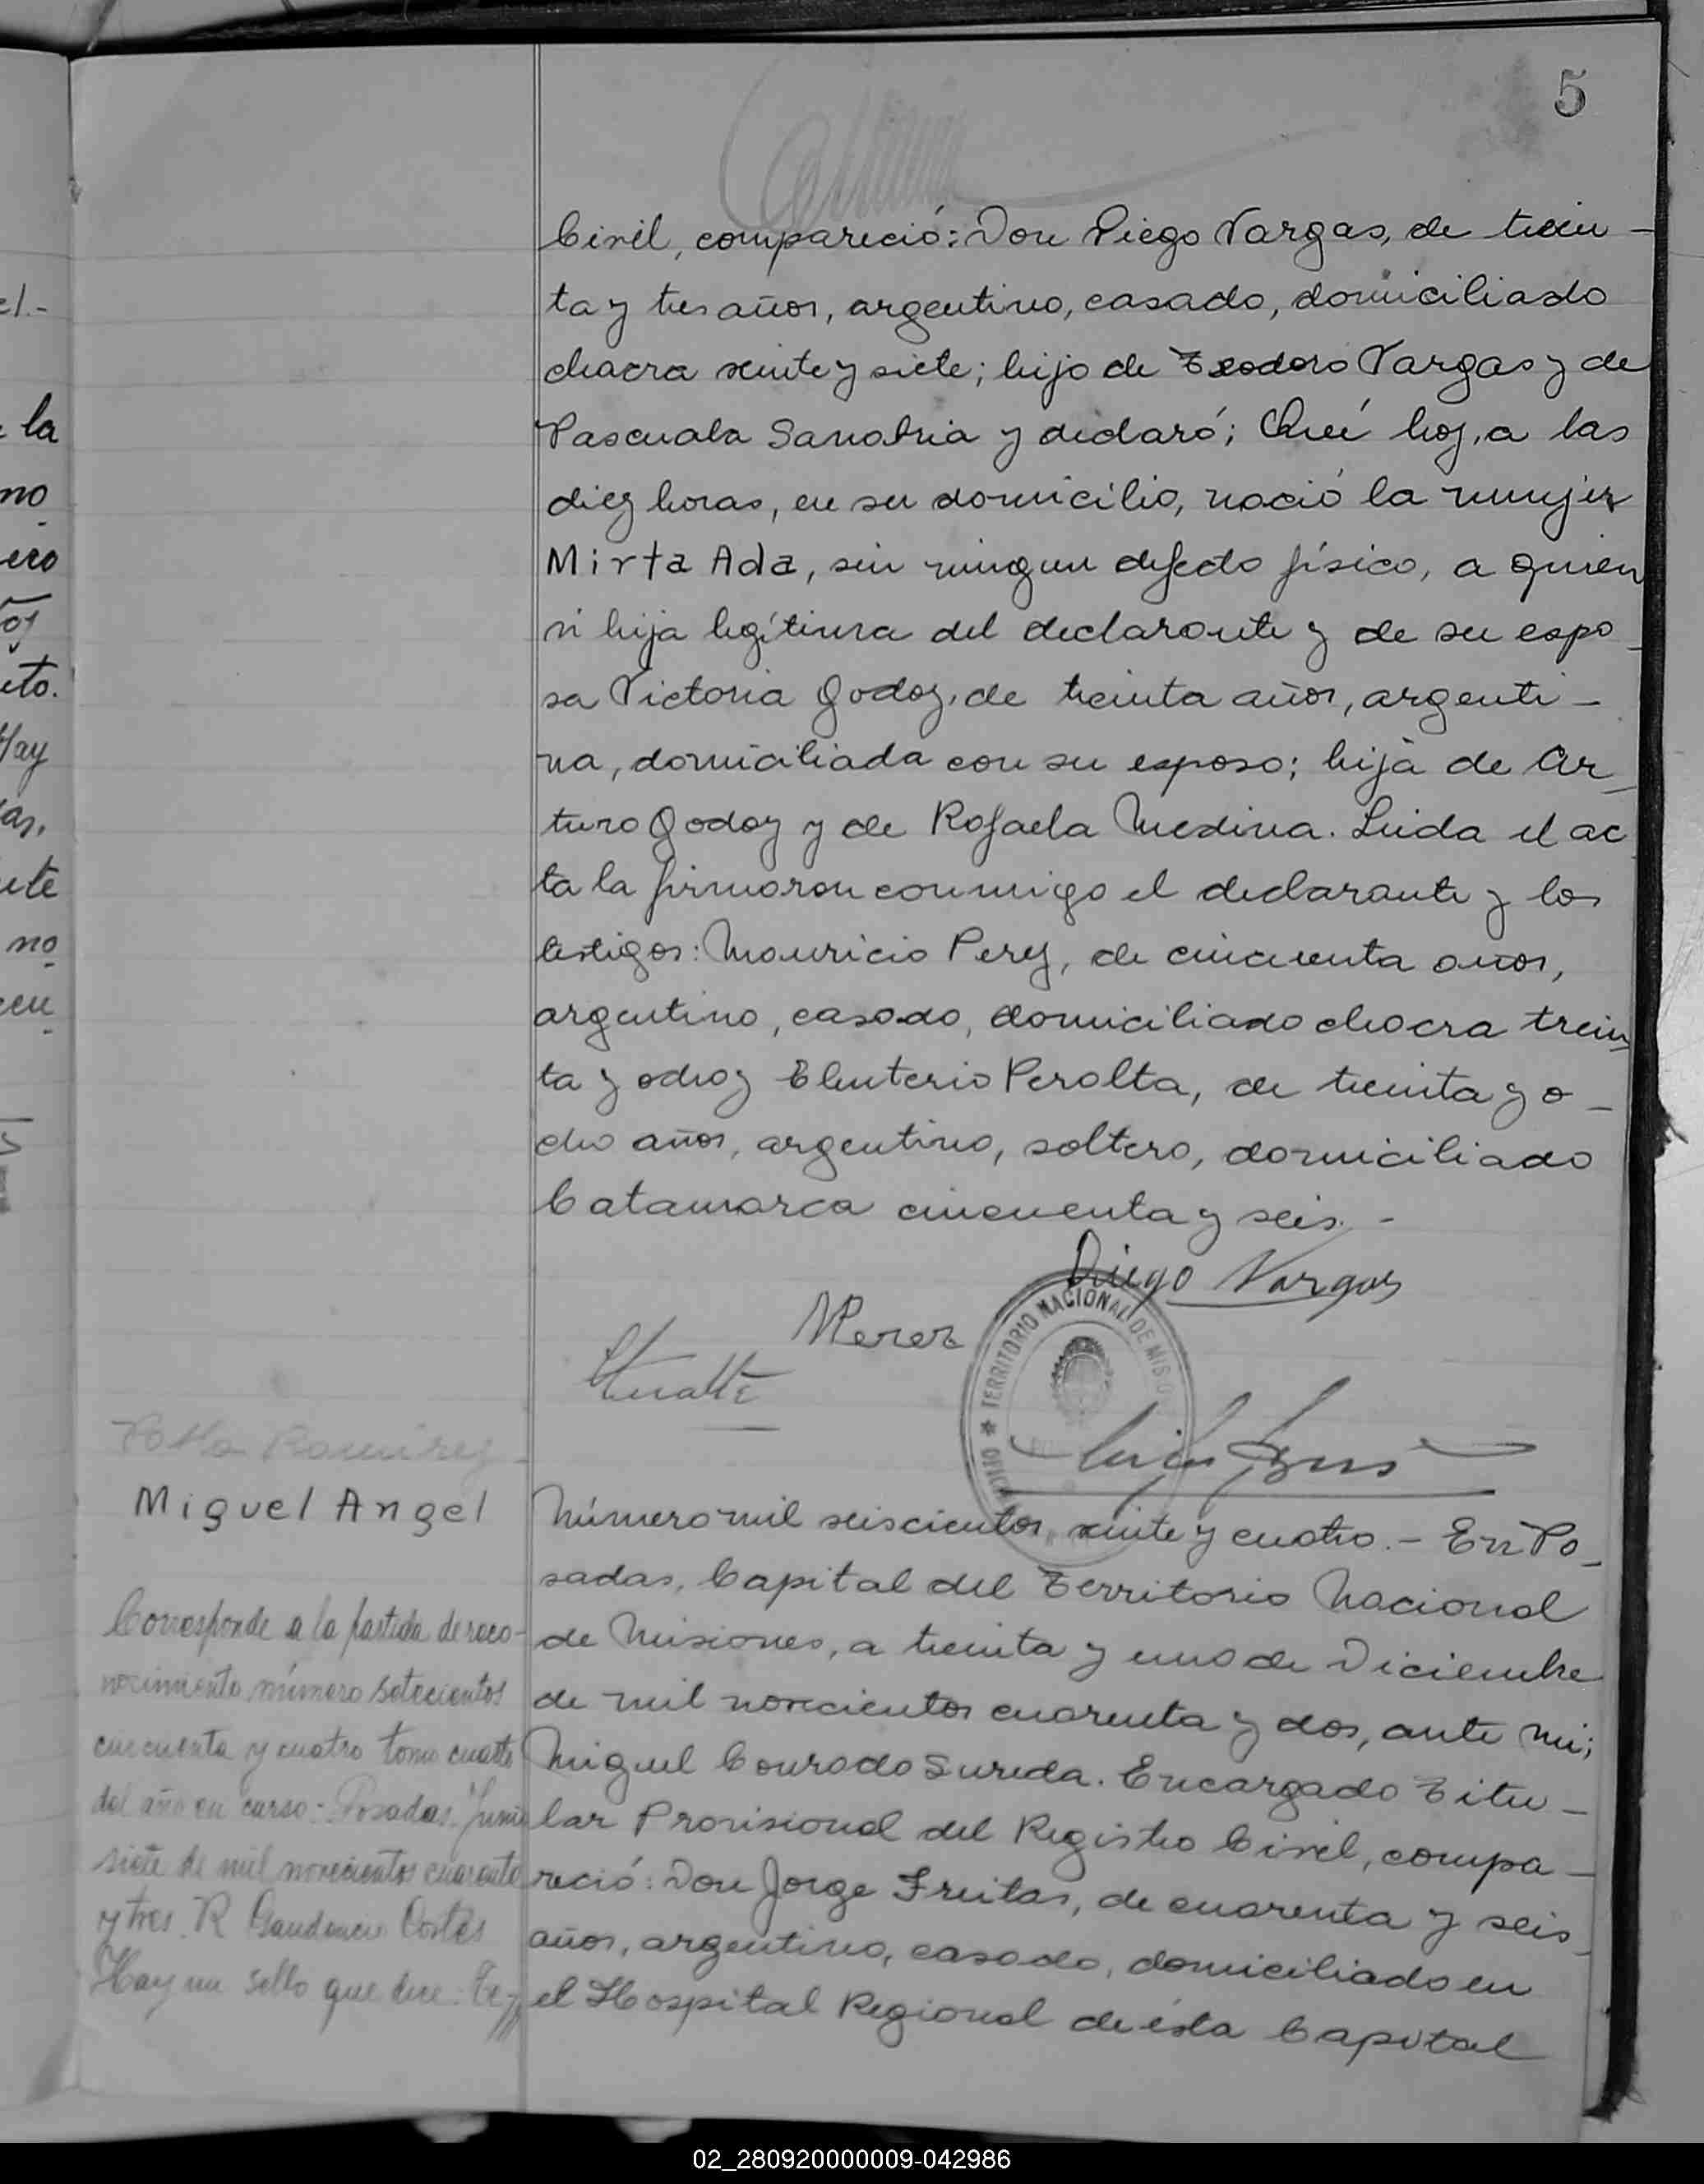 5
Civil, compareció: Don Diego Vargas, de trein-
ta y tres años, argentino, casado, domiciliado
chacra veinte y siete; hijo de Teodoro Vargas y de
Pascuala Sanabria y declaró; Qué hoy, a las
diez horas, en su domicilio, nació la mujer
Mirta Ada, sin ningun defecto físico, a quien
vi hija legítima del declarante y de su espo-
sa Victoria Godoy, de treinta años, argenti-
na, domiciliada con su esposo; hija de Ar-
turo Godoy y de Rafaela Medina. Leida el ac
ta la firmaron conmigo el declarante y los
testigos: Mauricio Perez, de cincuenta años,
argentino, casado, domiciliado chacra trein-
ta y ocho y Eleuterio Peralta, de treinta y o-
cho años, argentino, soltero, domiciliado
Catamarca cincuenta y seis.-
Diego Vargas
MPerez
TERRITORIO NACIONAL DE MISIO
Ramirez
Miguel Angel
Corresponde a la partida de reco-
nocimiento número setecientos
cincuenta y cuatro tomo cuarto
del año en curso.- Posadas. Junio
siete de mil novecientos cuarenta
y tres. R Gaudencio Cortés
Hay un sello que dice: Te-
Número mil seiscientos veinte y cuatro.- En Po-
sadas, Capital del Territorio Nacional
de Misiones, a treinta y uno de Diciembre
de mil novecientos cuarenta y dos, ante mi;
Miguel Conrado Sureda. Encargado Titu-
lar Provisional del Registro Civil, compa-
reció: Don Jorge Freitas, de cuarenta y seis
años, argentino, casado, domiciliado en
el Hospital Regional de ésta Capital
el.-
la
no
ero
ito.
Hay
as,
ute
no
en
02_280920000009-042986